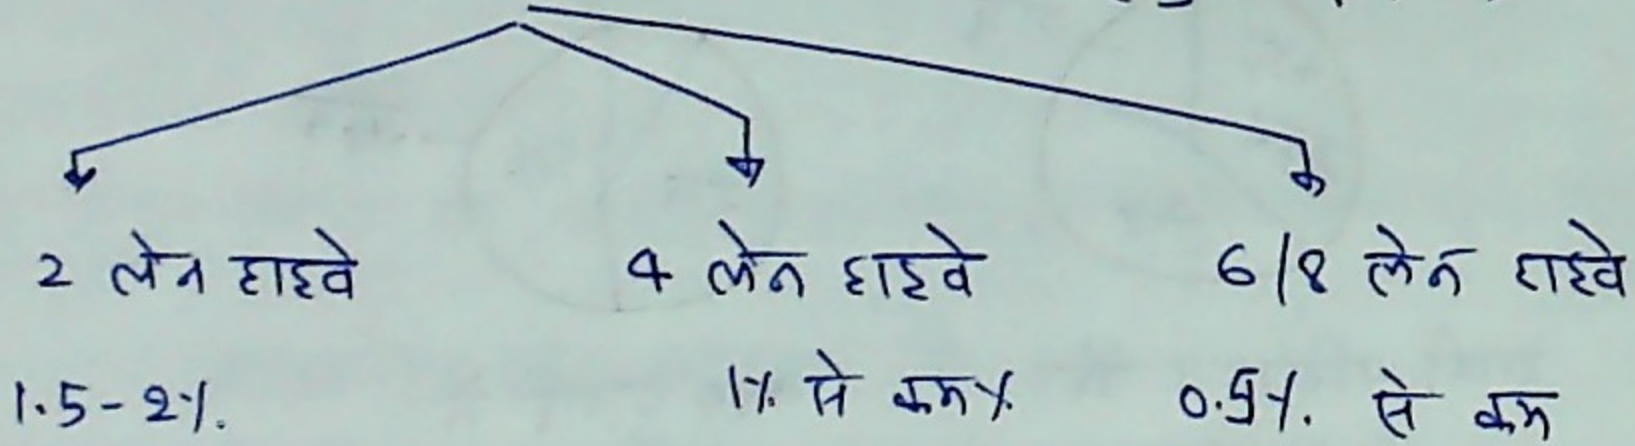 2 लेन हाइवे 4 लेन हाइवे 6/8 लेन हाइवे
1.5-2%. 1% से कम% 0.5%. से कम